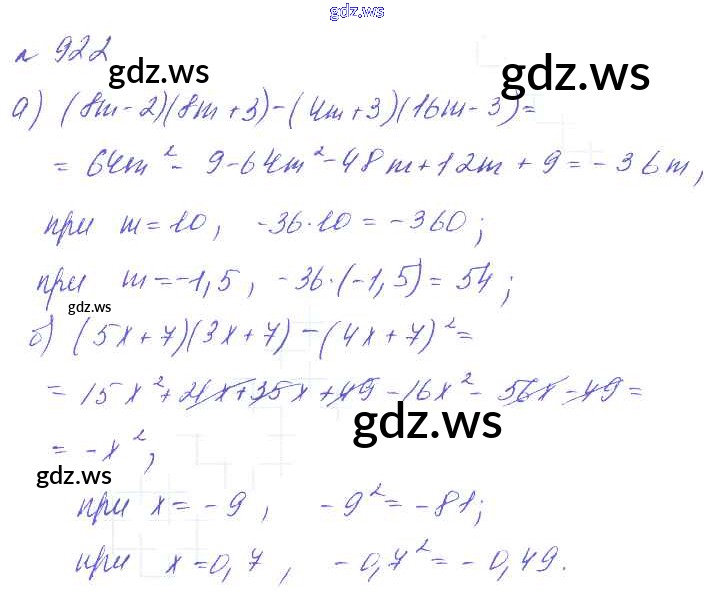 gdz.ws
№ 922
gdz.ws
gdz.ws
а) (8m-2)(8m+3)-(4m+3)(16m-3)=
= 64m² - 9-64m²-48m+12m+9=-36m,
при m=10, -36·10=-360;
при m=-1,5, -36·(-1,5)=54;
gdz.ws
б) (5x+7)(3x+7)-(4x+7)²=
= 15x²+21x+35x+49-16x²-56x-49=
gdz.ws
= -x²;
gdz.ws
при x=-9, -9²=-81;
при x=0,7, -0,7²=-0,49.